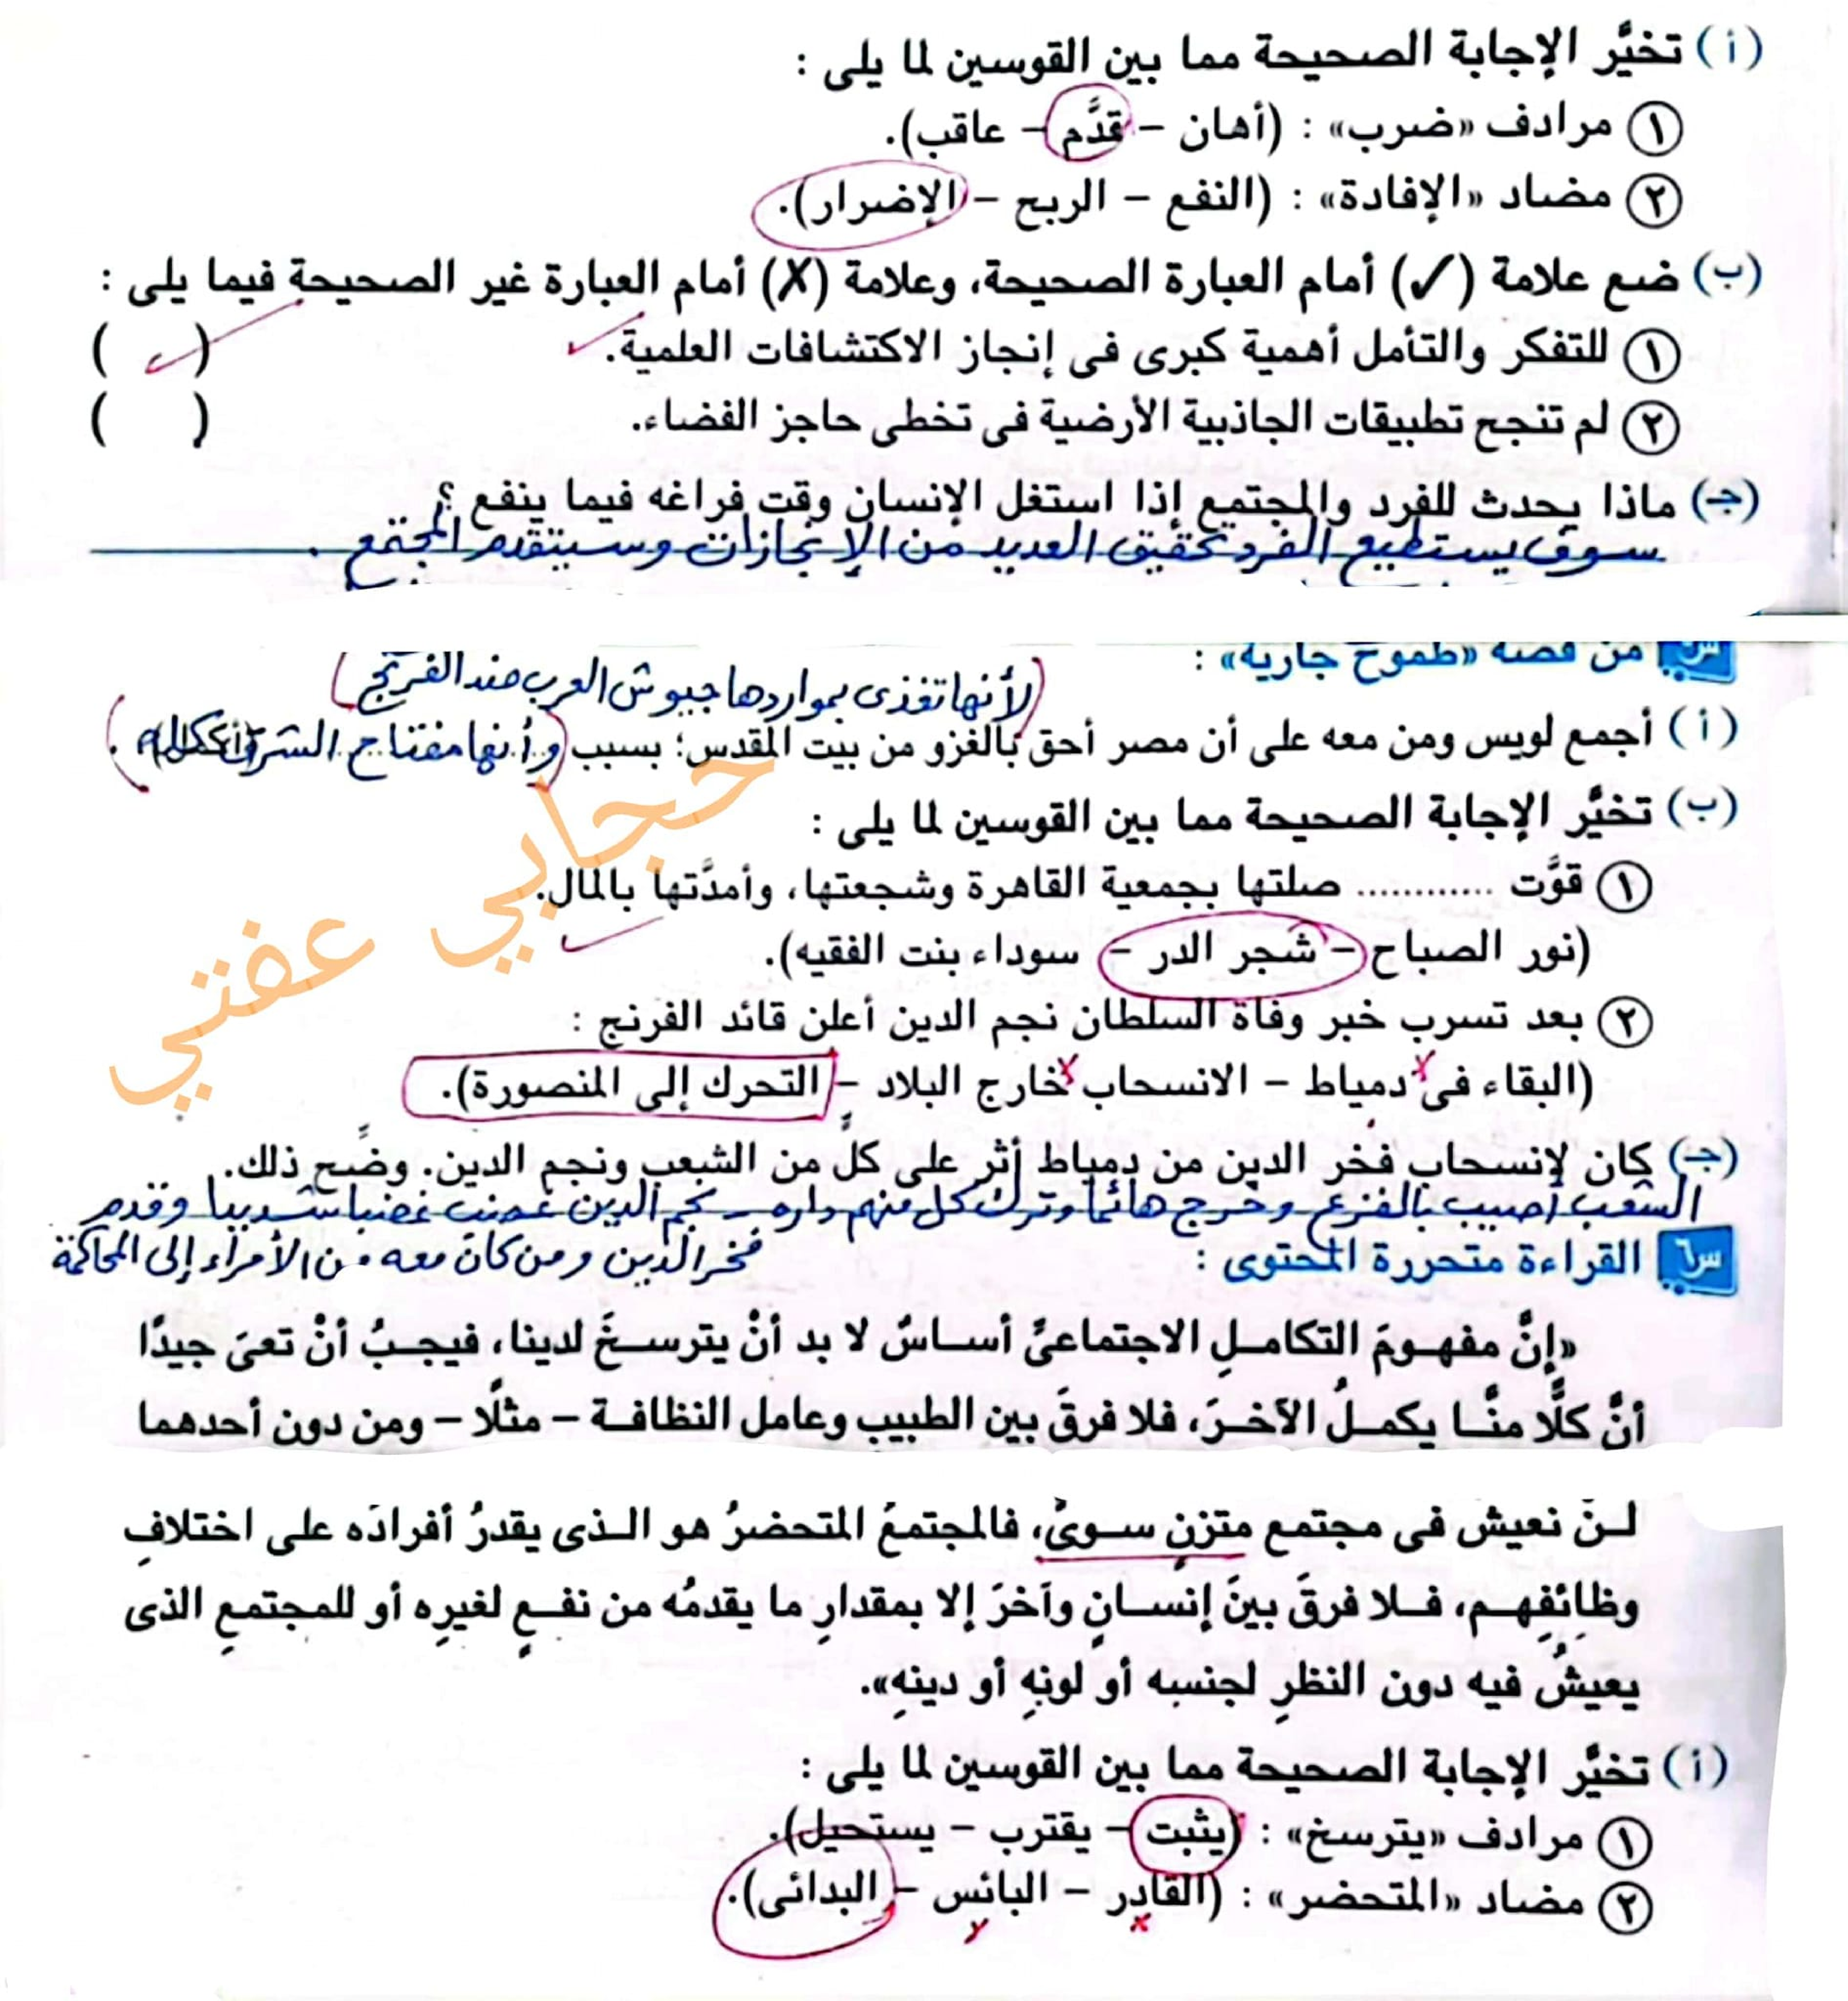 (أ) تخيَّر الإجابة الصحيحة مما بين القوسين لما يلى :
① مرادف «ضرب» : (أهان – قدَّم – عاقب).
② مضاد «الإفادة» : (النفع – الربح – الإضرار).
(ب) ضع علامة (✓) أمام العبارة الصحيحة، وعلامة (✗) أمام العبارة غير الصحيحة فيما يلى :
① للتفكر والتأمل أهمية كبرى فى إنجاز الاكتشافات العلمية. ✓ ( ✓ )
② لم تنجح تطبيقات الجاذبية الأرضية فى تخطى حاجز الفضاء. ( )
(جـ) ماذا يحدث للفرد والمجتمع إذا استغل الإنسان وقت فراغه فيما ينفع ؟
سوف يستطيع الفرد تحقيق العديد من الإنجازات وسيتقدم المجتمع .
من قصة «طموح جارية» :
(لأنها تغذى بمواردها جيوش العرب ضد الفرنج)
(أ) أجمع لويس ومن معه على أن مصر أحق بالغزو من بيت المقدس؛ بسبب (وأنها مفتاح الشرق كله) .
(ب) تخيَّر الإجابة الصحيحة مما بين القوسين لما يلى :
① قوَّت ............ صلتها بجمعية القاهرة وشجعتها، وأمدَّتها بالمال.
(نور الصباح – شجر الدر – سوداء بنت الفقيه).
② بعد تسرب خبر وفاة السلطان نجم الدين أعلن قائد الفرنج :
(البقاء فى دمياط – الانسحاب خارج البلاد – التحرك إلى المنصورة).
حجابي عفتي
(جـ) كان لانسحاب فخر الدين من دمياط أثر على كلٍّ من الشعب ونجم الدين. وضِّح ذلك.
الشعب أصيب بالفزع وخرج هائما وترك كل منهم داره – نجم الدين غضب غضبا شديدا وقدم
فخر الدين ومن كان معه من الأمراء إلى المحاكمة
س٦ القراءة متحررة المحتوى :
«إنَّ مفهومَ التكاملِ الاجتماعىِّ أساسٌ لا بد أنْ يترسخَ لدينا، فيجبُ أنْ تعىَ جيدًا
أنَّ كلًّا منَّا يكملُ الآخرَ، فلا فرقَ بين الطبيب وعامل النظافة – مثلًا – ومن دون أحدهما
لنْ نعيش فى مجتمع متزنٍ سوىٍّ، فالمجتمعُ المتحضرُ هو الذى يقدرُ أفرادَه على اختلافِ
وظائفِهم، فلا فرقَ بينَ إنسانٍ وآخرَ إلا بمقدارِ ما يقدمُه من نفعٍ لغيرِه أو للمجتمعِ الذى
يعيشُ فيه دون النظرِ لجنسِه أو لونِه أو دينِه».
(أ) تخيَّر الإجابة الصحيحة مما بين القوسين لما يلى :
① مرادف «يترسخ» : (يثبت – يقترب – يستحيل).
② مضاد «المتحضر» : (القادر – البائس – البدائى).